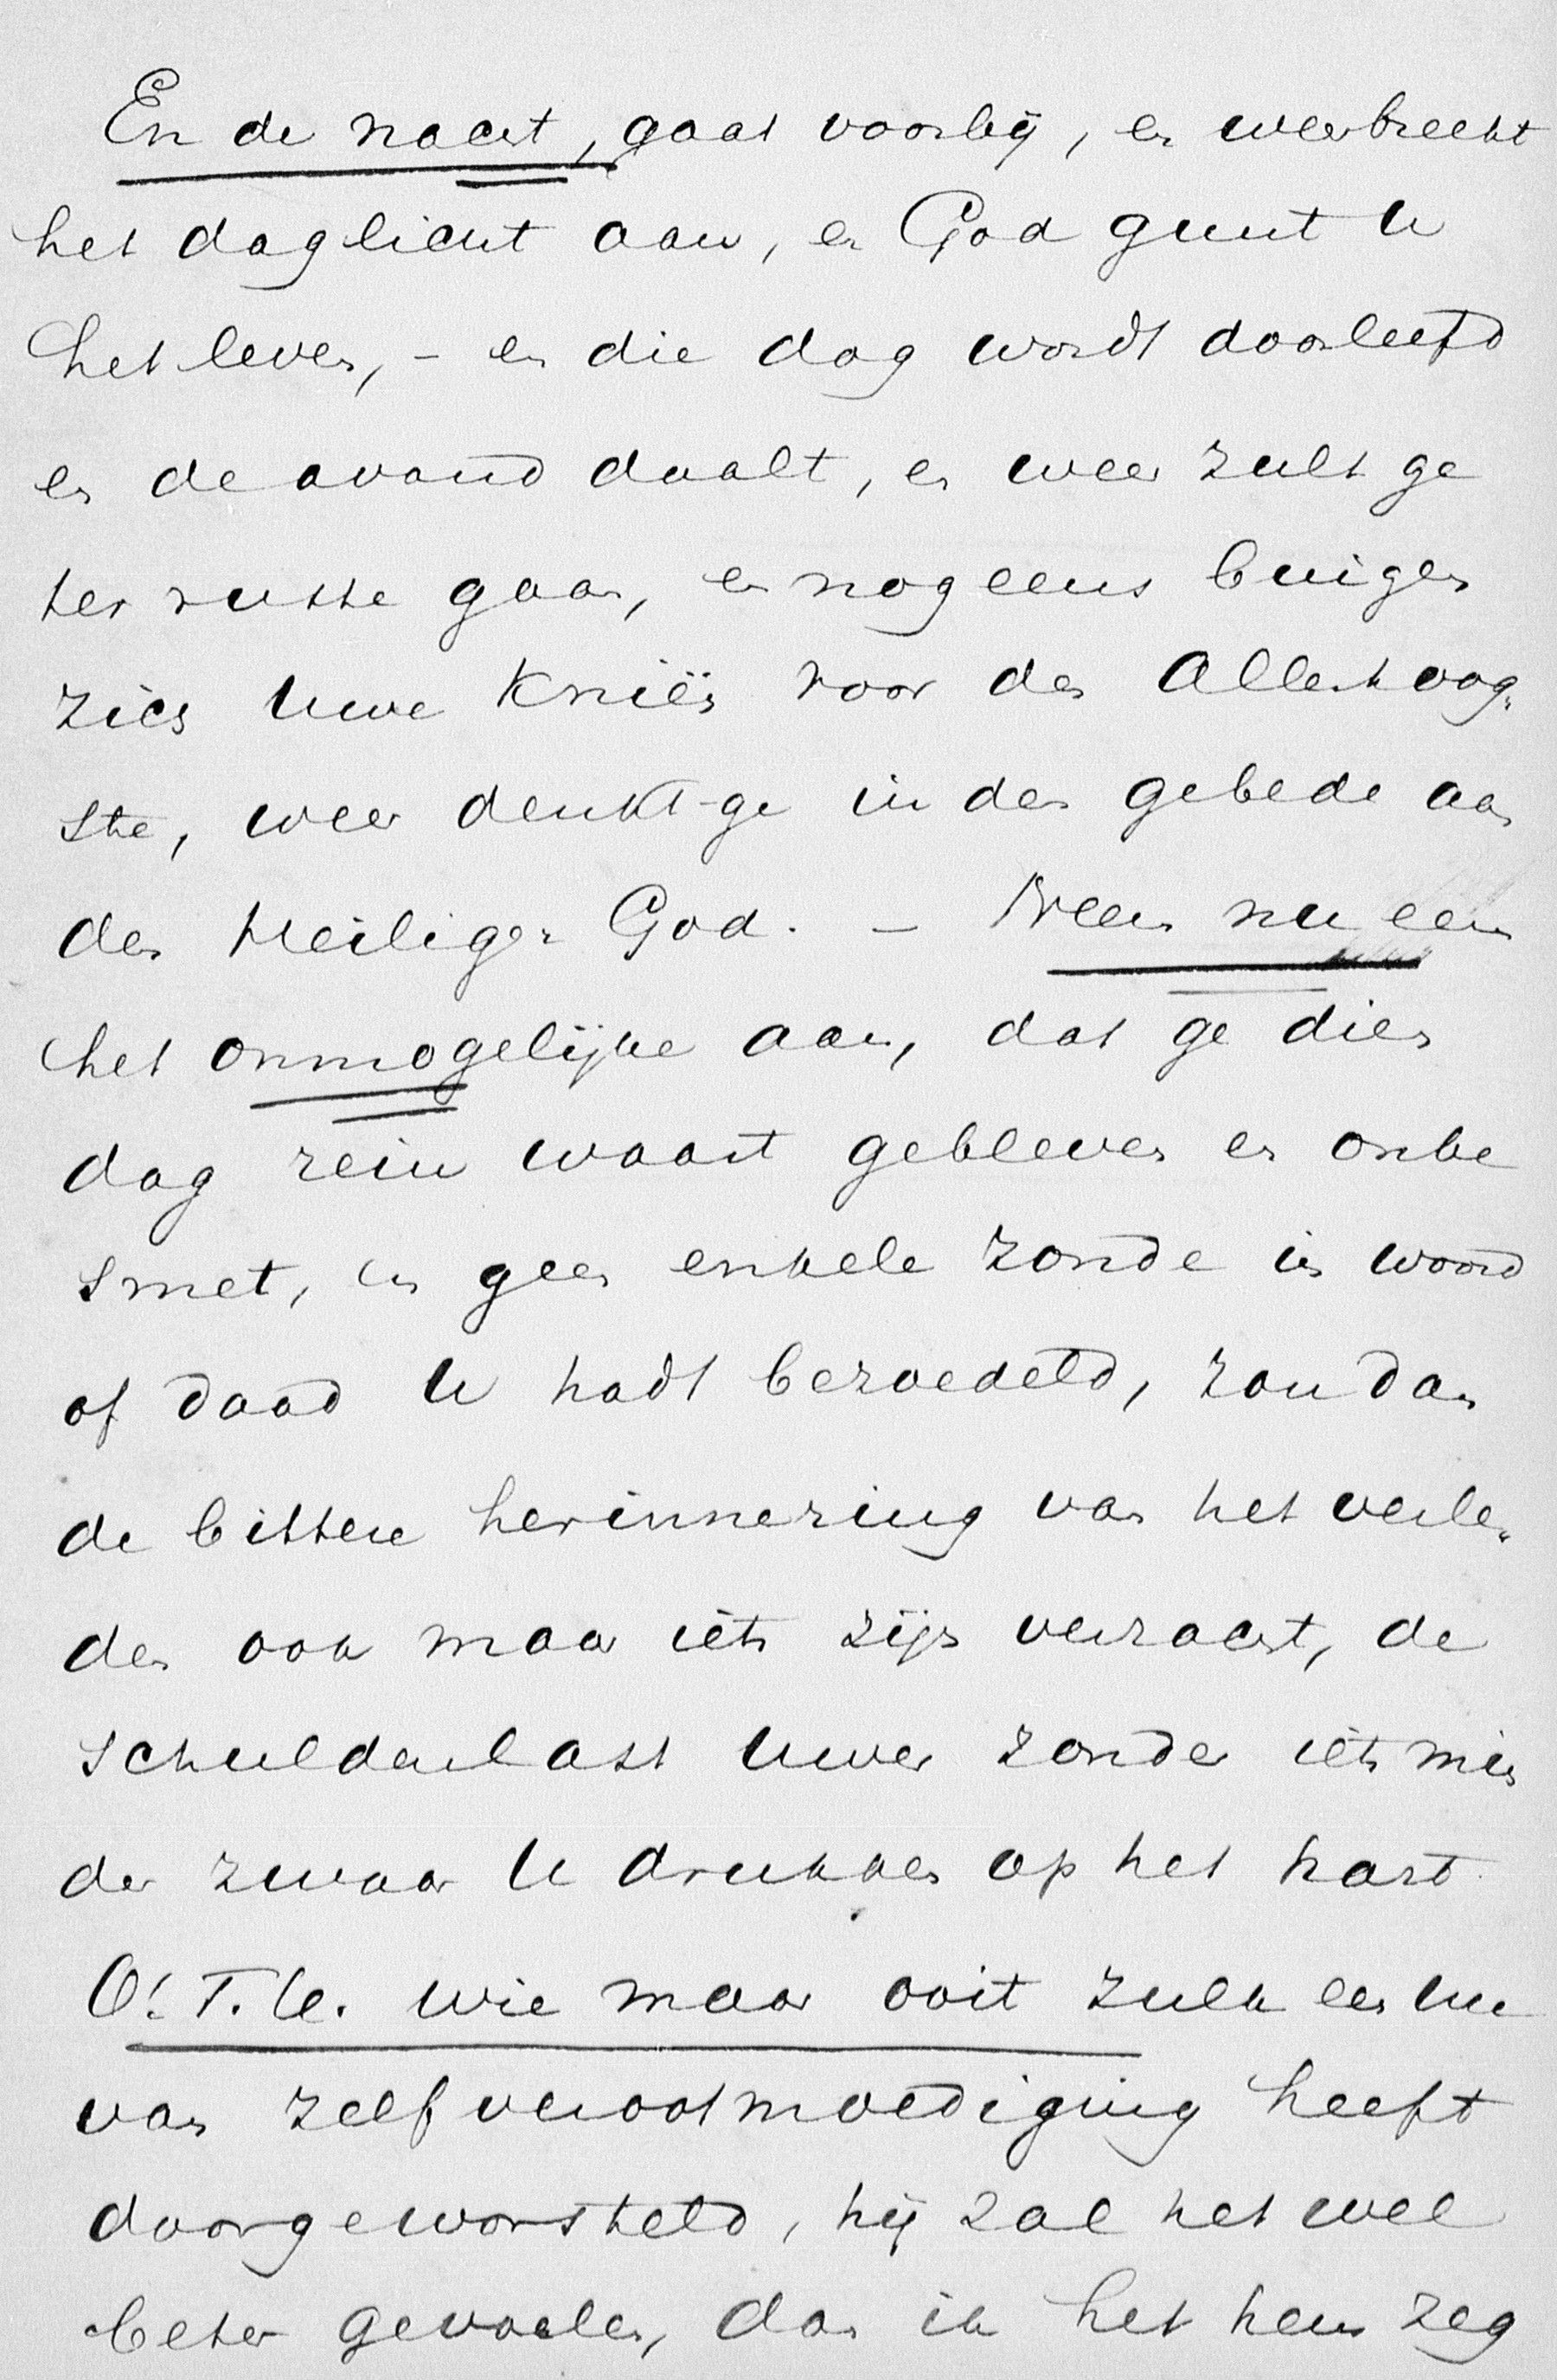 En de nacht, gaat voorbij, en weer breekt
het daglicht aan, en God gunt U
het leven, - en die dag wordt doorleefd
en de avond daalt, en weer zult ge
ter ruste gaan, en nog eens buigen
zich Uwe Knieën voor den Allerhoog„
ste, weer denkt-ge in den gebede aan
den Heiligen God. - Neem nu eens
het onmogelijke aan, dat ge dien
dag rein waart gebleven en onbe
smet, en geen enkele zonde in woord
of daad U hadt bezoedeld, zou dan
de bittere herinnering van het verle„
den ook maar iets zijn verzacht, de
schuldenlast Uwer zonden iets min
der zwaar U drukken op het hart
O! T. U. wie maar ooit zulk een uur
van zelfverootmoediging heeft
doorgeworsteld, hij zal het wel
beter gevoelen, dan ik het hem zeg